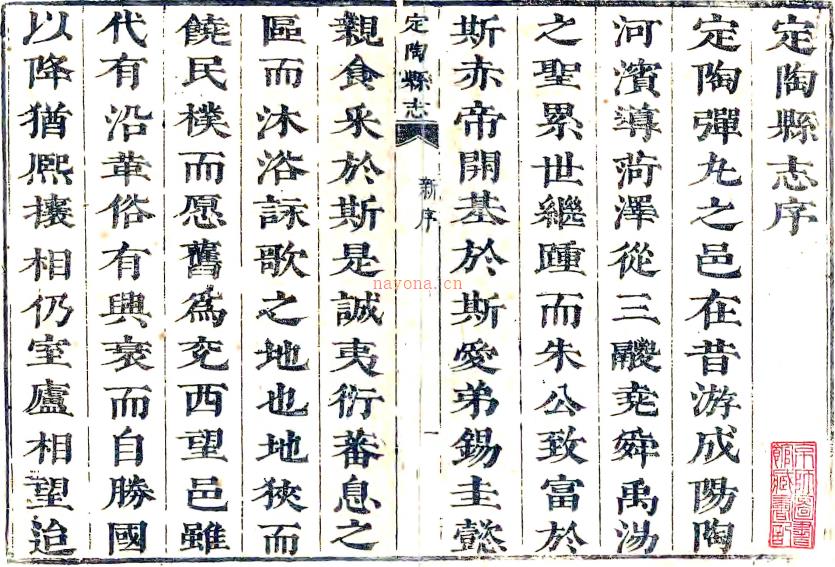 定陶縣志序
定陶彈丸之邑在昔游成陽陶
河濱導菏澤從三鬷堯舜禹湯
之聖累世繼踵而朱公致富於
斯赤帝開基於斯愛弟錫圭懿
定陶縣志
新序
一
親食采於斯是誠夷衍蕃息之
區而沐浴詠歌之地也地狹而
饒民樸而愿舊爲兖西望邑雖
代有沿革俗有興衰而自勝國
以降猶熈攘相仍室廬相望迨
nayona.cn